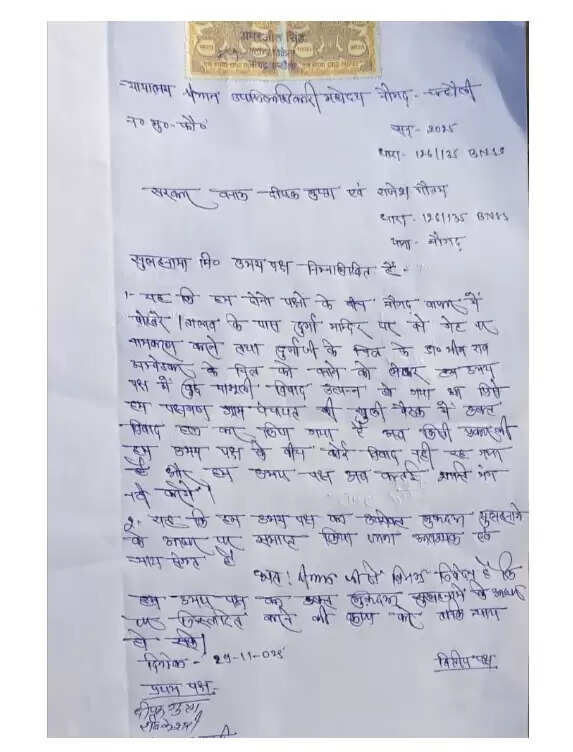 अमरजीत सिंह
न्यायालय श्रीमान उपजिलाधिकारी महोदय नौगढ़ - चन्दौली
सन - 2025
धारा - 126/135 BNSS
सरकार बनाम दीपक गुप्ता एवं राजेश गौतम
धारा - 126/135 BNSS
थाना - नौगढ़
सुलहनामा मि० उभय पक्ष निम्नलिखित है -
1- यह कि हम दोनो पक्षो के बीच नौगढ़ बाजार में
के पास दुर्गा मन्दिर पर बने गेट पर
नामकरण करने तथा दुर्गाजी के चित्र के डा० भीम राव
अम्बेडकर के चित्र को को लेकर हम उभय
पक्ष में कुछ मामूली विवाद उत्पन्न हो गया था जिसे
हम पक्षगण ग्राम पंचायत की खुली बैठक में उक्त
विवाद हल कर लिया गया है अब किसी प्रकार की
हम उभय पक्ष के बीच कोई विवाद नही रह गया
है और हम उभय पक्ष अब कतई शान्ति भंग
नही करेगें।
2- यह कि हम उभय पक्ष का उपरोक्त मुकदमा सुलहनामे
के आधार पर समाप्त किया जाना आवश्यक एवं
न्याय संगत है
अतः श्रीमान जी से विनम्र निवेदन है कि
हम उभय पक्ष का उक्त मुकदमा सुलहनामे के आधार
पर निस्तारित करने की कृपा करे ताकि न्याय
हो सके।
दिनांक - 29-11-025
द्वितीय पक्ष
प्रथम पक्ष
दीपक गुप्ता